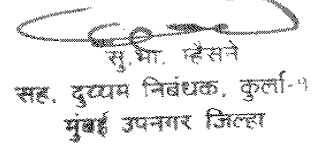 सु.भा. म्हैसने
सह. दुय्यम निबंधक, कुर्ला-१
मुंबई उपनगर जिल्हा